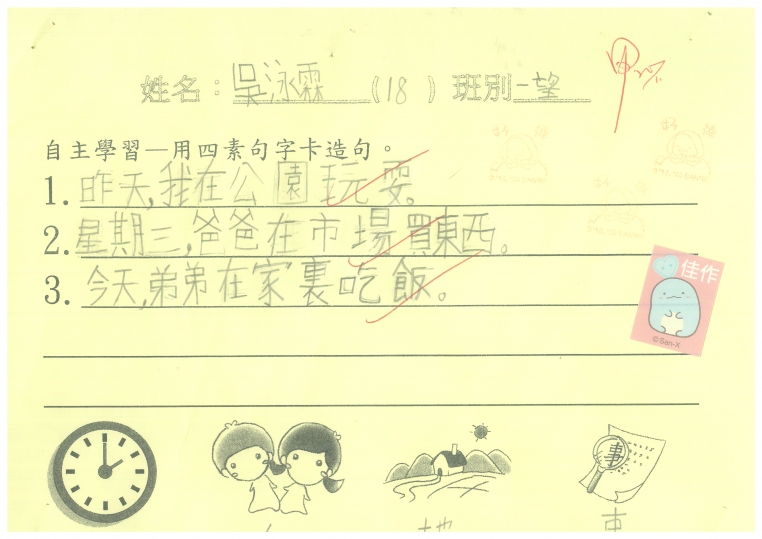 姓名：吳泳霖（18）班別一望
甲
自主學習—用四素句字卡造句。
1. 昨天,我在公園玩耍。
2. 星期三,爸爸在市場買東西。
3. 今天,弟弟在家裏吃飯。
佳作
©San-X
事
地